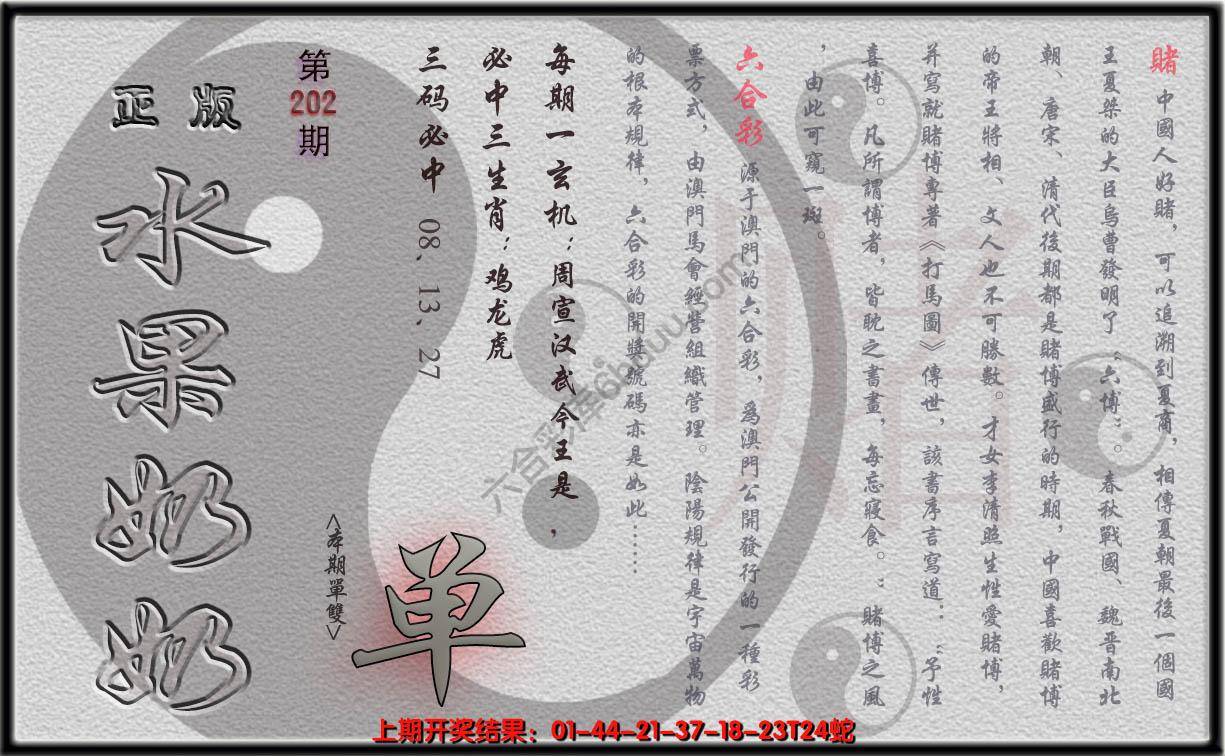 賭 中國人好賭，可以追溯到夏商，相傳夏朝最後一個國
王夏桀的大臣烏曹發明了“六博”。春秋戰國、魏晋南北
朝、唐宋、清代後期都是賭博盛行的時期，中國喜歡賭博
的帝王將相、文人也不可勝數。才女李清照生性愛賭博，
并寫就賭博專著《打馬圖》傳世，該書序言寫道：“予性
喜博。凡所謂博者，皆耽之書畫，每忘寢食。”賭博之風
，由此可窺一斑。
六合彩 源于澳門的六合彩，爲澳門公開發行的一種彩
票方式，由澳門馬會經營組織管理。陰陽規律是宇宙萬物
的根本規律，六合彩的開獎號碼亦是如此……
每期一玄机：周宣汉武今王是，
必中三生肖：鸡龙虎
三码必中 08、13、27
第
202
期
<本期單雙>
单
正版
水果奶奶
賭
六合彩库6huuu.com
上期开奖结果：01-44-21-37-18-23T24蛇